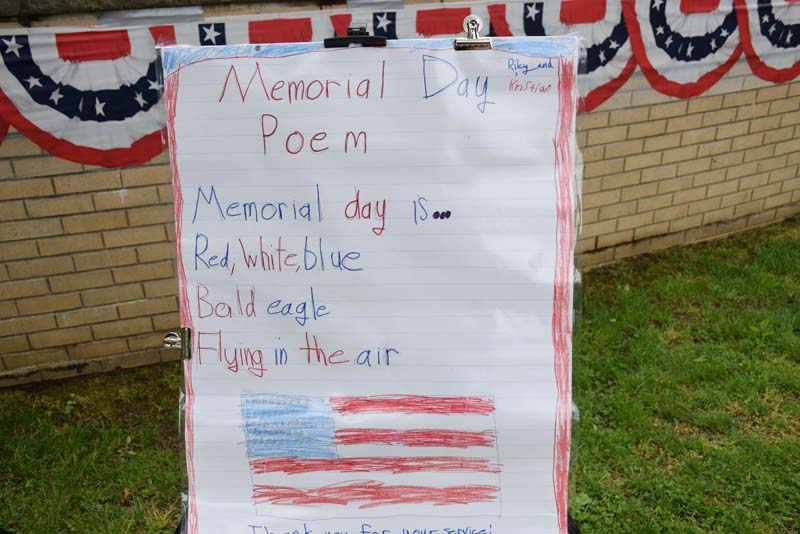 Memorial Day
Riley and
Kristian
Poem
Memorial day is...
Red, White, blue
Bald eagle
Flying in the air
Thank you for your service!